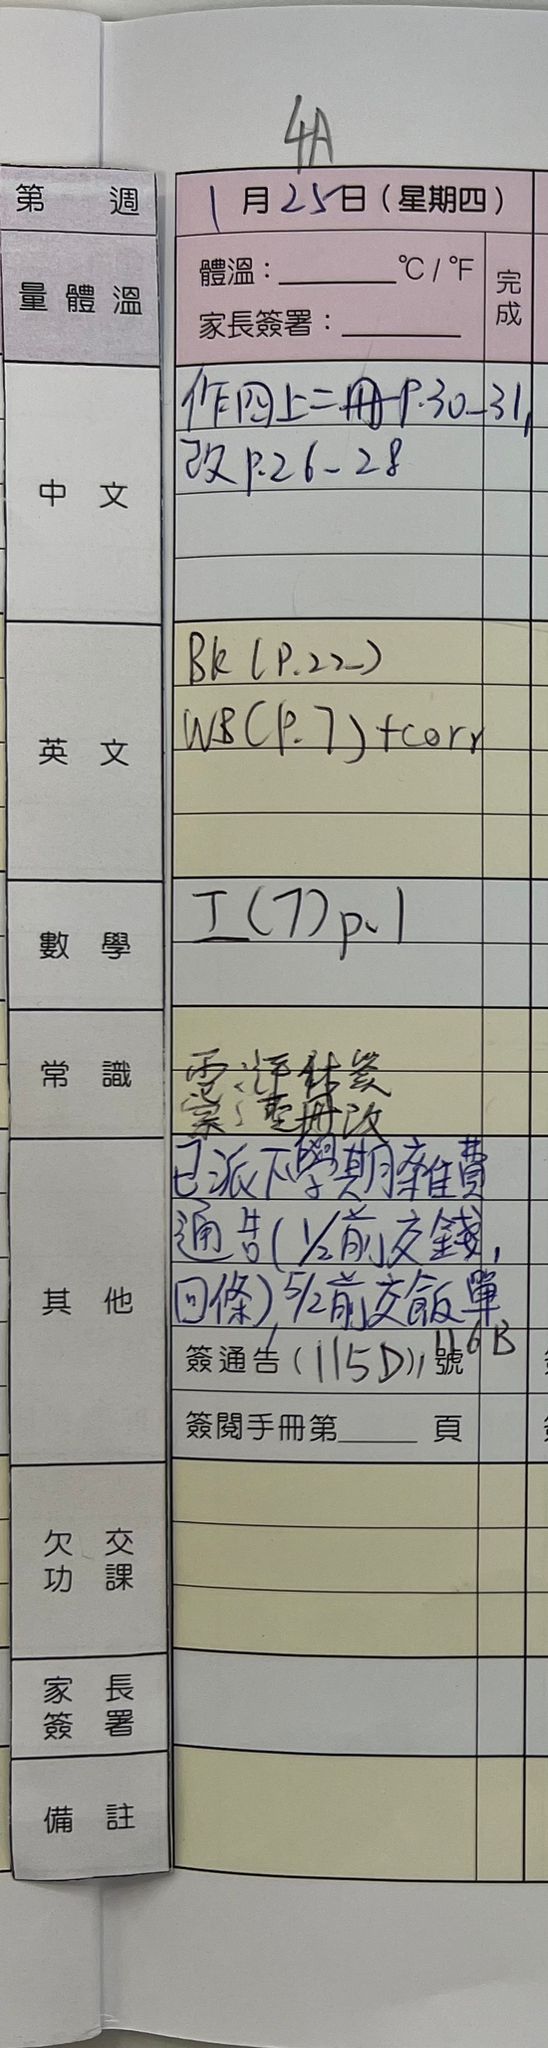 4A
第 週
1月25日（星期四）
量體溫
體溫：______°C/°F
完成
家長簽署：______
中文
作四上二冊P.30-31,
改P.26-28
英文
BK (P.22)
WB (P.7) +corr
數學
工(7)p.1
常識
其他
已派下學期雜費
通告(1/2前交錢,
回條), 5/2前交飯單
簽通告(115D), 116B號
簽閱手冊第____頁
欠交功課
家長簽署
備註